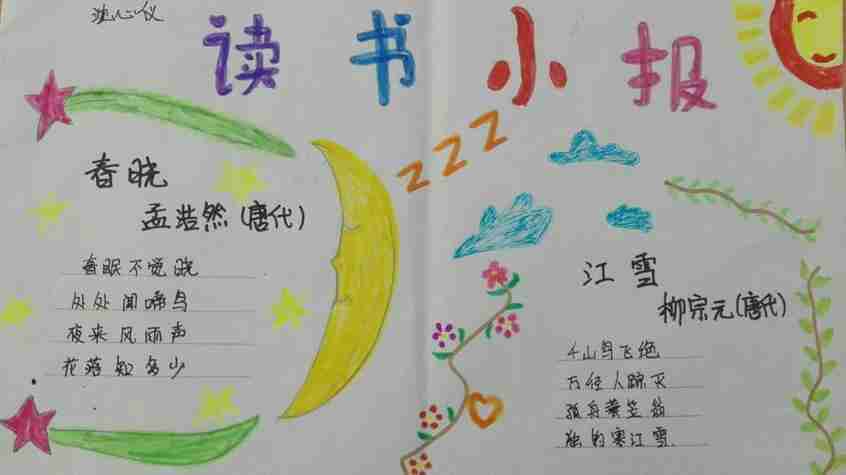 沈心仪
读书小报
春晓
孟浩然(唐代)
春眠不觉晓
处处闻啼鸟
夜来风雨声
花落知多少
zzz
江雪
柳宗元(唐代)
千山鸟飞绝
万径人踪灭
孤舟蓑笠翁
独钓寒江雪